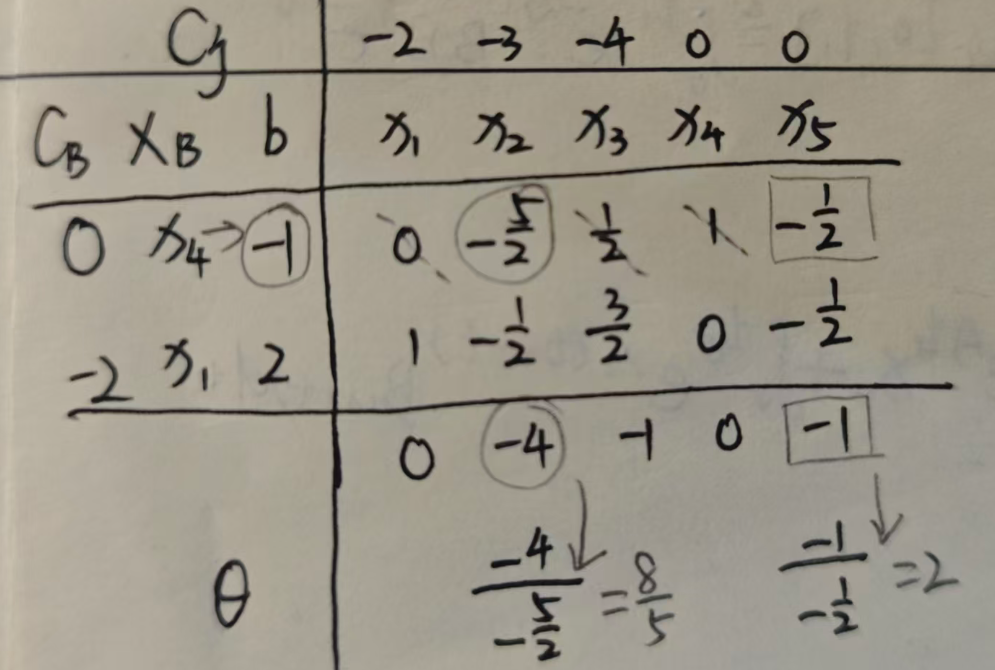 Cj -2 -3 -4 0 0
CB XB b x₁ x₂ x₃ x₄ x₅
0 x₄ → -1 0 -5/2 1/2 1 -1/2
-2 x₁ 2 1 -1/2 3/2 0 -1/2
0 -4 -1 0 -1
θ -4/(-5/2) = 8/5 -1/(-1/2) = 2